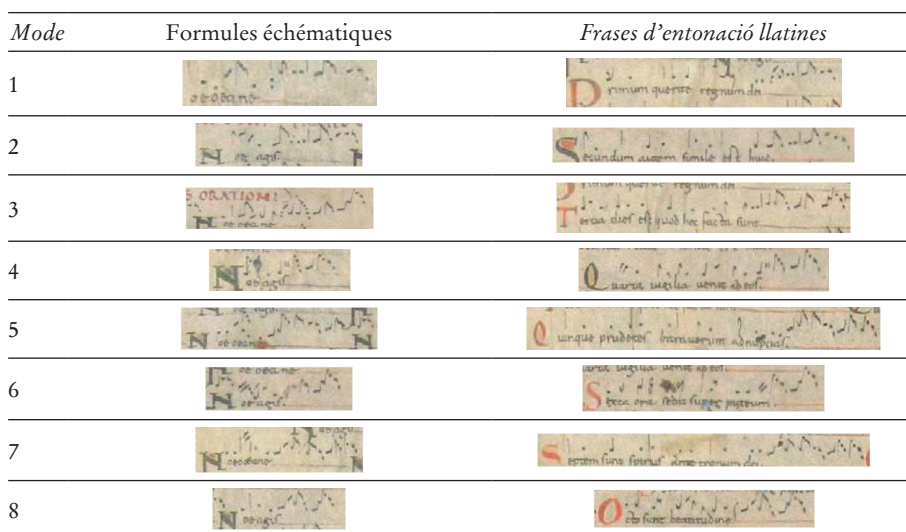 Mode Formules échématiques Frases d'entonació llatines
1 rimum querite regnum dei
2 Noe agis. Secundum autem simile est huic.
3 ORATIONI Noeoeane Tercia dies est quod hec facta sunt
4 Noeagis Quarta uigilia uenit ad eos.
5 Noeoeane Quinque prudentes intrauerunt ad nupcias.
6 Noeagis. Sexta ora sedit super puteum
7 Noeoeane Septem sunt spiritus ante tronum dei
8 Noeagis. Octo sunt beatitudines